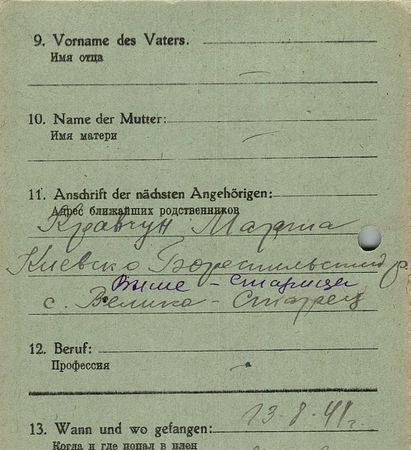 9. Vorname des Vaters.
Имя отца
10. Name der Mutter:
Имя матери
11. Anschrift der nächsten Angehörigen:
Адрес ближайших родственников
Кравчун Марта
Киевско Бореспильский р.
Више - Старица
с. Велика - Старец
12. Beruf:
Профессия
13. Wann und wo gefangen: 13-8-41 г.
Когда и где попал в плен